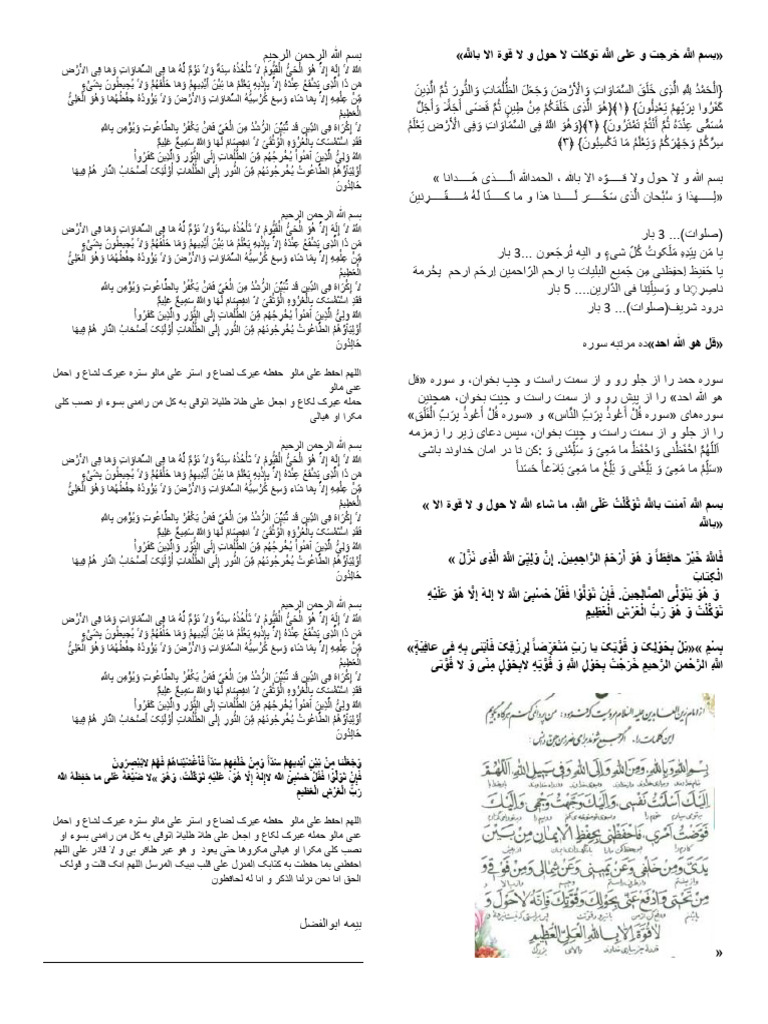 «بسم الله خرجت و علی الله توکلت لا حول و لا قوة الا بالله»
{الْحَمْدُ لِلّهِ الَّذِی خَلَقَ السَّمَاوَاتِ وَالأَرْضَ وَجَعَلَ الظُّلُمَاتِ وَالنُّورَ ثُمَّ الَّذِینَ
کَفَرُوا بِرَبِّهِم یَعْدِلُونَ} ﴿۱﴾{هُوَ الَّذِی خَلَقَکُم مِّن طِینٍ ثُمَّ قَضَى أَجَلاً وَأَجَلٌ
مُّسَمًّى عِندَهُ ثُمَّ أَنتُمْ تَمْتَرُونَ} ﴿۲﴾{وَهُوَ اللّهُ فِی السَّمَاوَاتِ وَفِی الأَرْضِ یَعْلَمُ
سِرَّکُمْ وَجَهرَکُمْ وَیَعْلَمُ مَا تَکْسِبُونَ} ﴿۳﴾
بسم الله و لا حول ولا قـــوّه الا بالله ، الحمدالله الّـــذی هَـــدانا »
«لِـــهذا وَ سُبْحان الَّذی سَخَّـــر لَـــنا هذا و ما کـــنّا لَهُ مُـــقْـــرِنینَ
(صلوات)... 3 بار
یا مَن بِیَدِهِ مَلَکوتُ کُلِّ شیءٍ و الیه تُرجَعون ...3 بار
یا حَفیظ اِحفِظنی مِن جَمیع البلیات یا ارحم الرّاحمین اِرحَم ارحم بحُرمة
ناصِرِنا و وَسیلَتِنا فی الدّارین.... 5 بار
درود شریف(صلوات)... 3 بار
«قل هو الله احد»ده مرتبه سوره
سوره حمد را از جلو رو و از سمت راست و چپ بخوان، و سوره «قل
هو الله احد» را از پیش رو و از سمت راست و چپ بخوان، همچنین
سوره‌های «سوره قُلْ أَعُوذُ بِرَبِّ النَّاسِ» و «سوره قُلْ أَعُوذُ بِرَبِّ الْفَلَقِ»
را از جلو و از سمت راست و چپت بخوان، سپس دعای زیر را زمزمه
اَللَّهُمَّ احْفَظْنی وَاحْفَظْ ما مَعِیَ وَ سَلِّمْنی وَ :کن تا در امان خداوند باشی
«سَلِّمْ ما مَعِیَ وَ بَلِّغْنی وَ بَلِّغْ ما مَعِیَ بَلاغاً حَسَناً
بسم الله آمنت بالله تَوَکَّلْتُ عَلَی اللهِ، ما شاء الله لا حول و لا قوة الا »
«بالله
فَاللَّهُ خَیْرٌ حافِظاً وَ هُوَ أَرْحَمُ الرَّاحِمِینَ. إِنَّ وَلِیِّیَ اللَّهُ الَّذِی نَزَّلَ »
الْکِتابَ
وَ هُوَ یَتَوَلَّى الصَّالِحِینَ. فَإِنْ تَوَلَّوْا فَقُلْ حَسْبِیَ اللَّهُ لا إِلهَ إِلَّا هُوَ عَلَیْهِ
تَوَکَّلْتُ وَ هُوَ رَبُّ الْعَرْشِ الْعَظِیمِ
بِسْمِ »«بَلْ بِحَوْلِکَ وَ قُوَّتِکَ یا رَبِّ مُتَعَرِّضاً لِرِزْقِکَ فَأْتِنی بِهِ فی عافِیَةٍ»
اللهِ الرَّحْمنِ الرَّحیمِ خَرَجْتُ بِحَوْلِ اللَّهِ وَ قُوَّتِهِ لابِحَوْلٍ مِنّی وَ لا قُوَّتی
بِسْمِ اللهِ وَبِاللهِ، وَمِنَ اللهِ وَاِلَى اللهِ وَفی سَبیلِ اللهِ، اَللّهُمَّ
اِلَیْکَ اَسْلَمْتُ نَفْسی، وَاِلَیْکَ وَجَّهْتُ وَجْهی، وَاِلَیْکَ
فَوَّضْتُ اَمْری، فَاحْفَظْنی بِحِفْظِ الْایمانِ مِنْ بَیْنِ
یَدَیَّ وَمِنْ خَلْفی وَعَنْ یَمینی وَعَنْ شِمالی وَمِنْ فَوْقی وَ
مِنْ تَحْتی وَادْفَعْ عَنّی بِحَوْلِکَ وَقُوَّتِکَ فَاِنَّهُ لاحَوْلَ وَ
لا قُوَّةَ اِلّا بِاللهِ الْعَلِیِّ الْعَظیمِ
«
بسم الله الرحمن الرحیم
اللّهُ لاَ إِلَهَ إِلاَّ هُوَ الْحَیُّ الْقَیُّومُ لاَ تَأْخُذُهُ سِنَةٌ وَلاَ نَوْمٌ لَّهُ مَا فِی السَّمَاوَاتِ وَمَا فِی الأَرْضِ
مَن ذَا الَّذِی یَشْفَعُ عِنْدَهُ إِلاَّ بِإِذْنِهِ یَعْلَمُ مَا بَیْنَ أَیْدِیهِمْ وَمَا خَلْفَهُمْ وَلاَ یُحِیطُونَ بِشَیْءٍ
مِّنْ عِلْمِهِ إِلاَّ بِمَا شَاء وَسِعَ کُرْسِیُّهُ السَّمَاوَاتِ وَالأَرْضَ وَلاَ یَؤُودُهُ حِفْظُهُمَا وَهُوَ الْعَلِیُّ
الْعَظِیمُ
لاَ إِکْرَاهَ فِی الدِّینِ قَد تَّبَیَّنَ الرُّشْدُ مِنَ الْغَیِّ فَمَنْ یَکْفُرْ بِالطَّاغُوتِ وَیُؤْمِن بِاللّهِ
فَقَدِ اسْتَمْسَکَ بِالْعُرْوَةِ الْوُثْقَىَ لاَ انفِصَامَ لَهَا وَاللّهُ سَمِیعٌ عَلِیمٌ
اللّهُ وَلِیُّ الَّذِینَ آمَنُواْ یُخْرِجُهُم مِّنَ الظُّلُمَاتِ إِلَى النُّوُرِ وَالَّذِینَ کَفَرُواْ
أَوْلِیَآؤُهُمُ الطَّاغُوتُ یُخْرِجُونَهُم مِّنَ النُّورِ إِلَى الظُّلُمَاتِ أُوْلَئِکَ أَصْحَابُ النَّارِ هُمْ فِیهَا
خَالِدُونَ
بسم الله الرحمن الرحیم
اللّهُ لاَ إِلَهَ إِلاَّ هُوَ الْحَیُّ الْقَیُّومُ لاَ تَأْخُذُهُ سِنَةٌ وَلاَ نَوْمٌ لَّهُ مَا فِی السَّمَاوَاتِ وَمَا فِی الأَرْضِ
مَن ذَا الَّذِی یَشْفَعُ عِنْدَهُ إِلاَّ بِإِذْنِهِ یَعْلَمُ مَا بَیْنَ أَیْدِیهِمْ وَمَا خَلْفَهُمْ وَلاَ یُحِیطُونَ بِشَیْءٍ
مِّنْ عِلْمِهِ إِلاَّ بِمَا شَاء وَسِعَ کُرْسِیُّهُ السَّمَاوَاتِ وَالأَرْضَ وَلاَ یَؤُودُهُ حِفْظُهُمَا وَهُوَ الْعَلِیُّ الْعَظِیمُ
لاَ إِکْرَاهَ فِی الدِّینِ قَد تَّبَیَّنَ الرُّشْدُ مِنَ الْغَیِّ فَمَنْ یَکْفُرْ بِالطَّاغُوتِ وَیُؤْمِن بِاللّهِ
فَقَدِ اسْتَمْسَکَ بِالْعُرْوَةِ الْوُثْقَىَ لاَ انفِصَامَ لَهَا وَاللّهُ سَمِیعٌ عَلِیمٌ
اللّهُ وَلِیُّ الَّذِینَ آمَنُواْ یُخْرِجُهُم مِّنَ الظُّلُمَاتِ إِلَى النُّوُرِ وَالَّذِینَ کَفَرُواْ
أَوْلِیَآؤُهُمُ الطَّاغُوتُ یُخْرِجُونَهُم مِّنَ النُّورِ إِلَى الظُّلُمَاتِ أُوْلَئِکَ أَصْحَابُ النَّارِ هُمْ فِیهَا
خَالِدُونَ
اللهم احفظ علی مالو حفظه عیرک لضاع و استر علی مالو ستره غیرک لشاع و احمل
عنی مالو
حمله غیرک لکاع و اجعل علی ظلا ظلیلا اتوقی به کل من رامنی بسوء او نصب کلی
مکرا او هیالی
بسم الله الرحمن الرحیم
اللّهُ لاَ إِلَهَ إِلاَّ هُوَ الْحَیُّ الْقَیُّومُ لاَ تَأْخُذُهُ سِنَةٌ وَلاَ نَوْمٌ لَّهُ مَا فِی السَّمَاوَاتِ وَمَا فِی الأَرْضِ
مَن ذَا الَّذِی یَشْفَعُ عِنْدَهُ إِلاَّ بِإِذْنِهِ یَعْلَمُ مَا بَیْنَ أَیْدِیهِمْ وَمَا خَلْفَهُمْ وَلاَ یُحِیطُونَ بِشَیْءٍ
مِّنْ عِلْمِهِ إِلاَّ بِمَا شَاء وَسِعَ کُرْسِیُّهُ السَّمَاوَاتِ وَالأَرْضَ وَلاَ یَؤُودُهُ حِفْظُهُمَا وَهُوَ الْعَلِیُّ
الْعَظِیمُ
لاَ إِکْرَاهَ فِی الدِّینِ قَد تَّبَیَّنَ الرُّشْدُ مِنَ الْغَیِّ فَمَنْ یَکْفُرْ بِالطَّاغُوتِ وَیُؤْمِن بِاللّهِ
فَقَدِ اسْتَمْسَکَ بِالْعُرْوَةِ الْوُثْقَىَ لاَ انفِصَامَ لَهَا وَاللّهُ سَمِیعٌ عَلِیمٌ
اللّهُ وَلِیُّ الَّذِینَ آمَنُواْ یُخْرِجُهُم مِّنَ الظُّلُمَاتِ إِلَى النُّوُرِ وَالَّذِینَ کَفَرُواْ
أَوْلِیَآؤُهُمُ الطَّاغُوتُ یُخْرِجُونَهُم مِّنَ النُّورِ إِلَى الظُّلُمَاتِ أُوْلَئِکَ أَصْحَابُ النَّارِ هُمْ فِیهَا
خَالِدُونَ
بسم الله الرحمن الرحیم
اللّهُ لاَ إِلَهَ إِلاَّ هُوَ الْحَیُّ الْقَیُّومُ لاَ تَأْخُذُهُ سِنَةٌ وَلاَ نَوْمٌ لَّهُ مَا فِی السَّمَاوَاتِ وَمَا فِی الأَرْضِ
مَن ذَا الَّذِی یَشْفَعُ عِنْدَهُ إِلاَّ بِإِذْنِهِ یَعْلَمُ مَا بَیْنَ أَیْدِیهِمْ وَمَا خَلْفَهُمْ وَلاَ یُحِیطُونَ بِشَیْءٍ
مِّنْ عِلْمِهِ إِلاَّ بِمَا شَاء وَسِعَ کُرْسِیُّهُ السَّمَاوَاتِ وَالأَرْضَ وَلاَ یَؤُودُهُ حِفْظُهُمَا وَهُوَ الْعَلِیُّ
الْعَظِیمُ
لاَ إِکْرَاهَ فِی الدِّینِ قَد تَّبَیَّنَ الرُّشْدُ مِنَ الْغَیِّ فَمَنْ یَکْفُرْ بِالطَّاغُوتِ وَیُؤْمِن بِاللّهِ
فَقَدِ اسْتَمْسَکَ بِالْعُرْوَةِ الْوُثْقَىَ لاَ انفِصَامَ لَهَا وَاللّهُ سَمِیعٌ عَلِیمٌ
اللّهُ وَلِیُّ الَّذِینَ آمَنُواْ یُخْرِجُهُم مِّنَ الظُّلُمَاتِ إِلَى النُّوُرِ وَالَّذِینَ کَفَرُواْ
أَوْلِیَآؤُهُمُ الطَّاغُوتُ یُخْرِجُونَهُم مِّنَ النُّورِ إِلَى الظُّلُمَاتِ أُوْلَئِکَ أَصْحَابُ النَّارِ هُمْ فِیهَا
خَالِدُونَ
وَجَعَلْنَا مِن بَیْنِ أَیْدِیهِمْ سَدّاً وَمِنْ خَلْفِهِمْ سَدّاً فَأَغْشَیْنَاهُمْ فَهُمْ لایُبْصِرُونَ
فَإِنْ تَوَلَّوْا فَقُلْ حَسْبِیَ اللَّه لاإِلهَ إِلَّا هُوَ، عَلَیْهِ تَوَکَّلْتُ، وَهُوَ »لا ضَیْعَةَ عَلى ما حَفِظَهُ اللَّه
رَبُّ الْعَرْشِ الْعَظیمِ
اللهم احفظ علی مالو حفظه عیرک لضاع و استر علی مالو ستره غیرک لشاع و احمل
عنی مالو حمله غیرک لکاع و اجعل علی ظلا ظلیلا اتوقی به کل من رامنی بسوء او
نصب کلی مکرا او هیالی مکروها حتی یعود و هو غیر ظافر بی و لا قادر علی اللهم
احفظنی بما حفظت به کتابک المنزل علی قلب نبیک المرسل اللهم انک قلت و قولک
الحق انا نحن نزلنا الذکر و انا له لحافظون
بیمه ابوالفضل